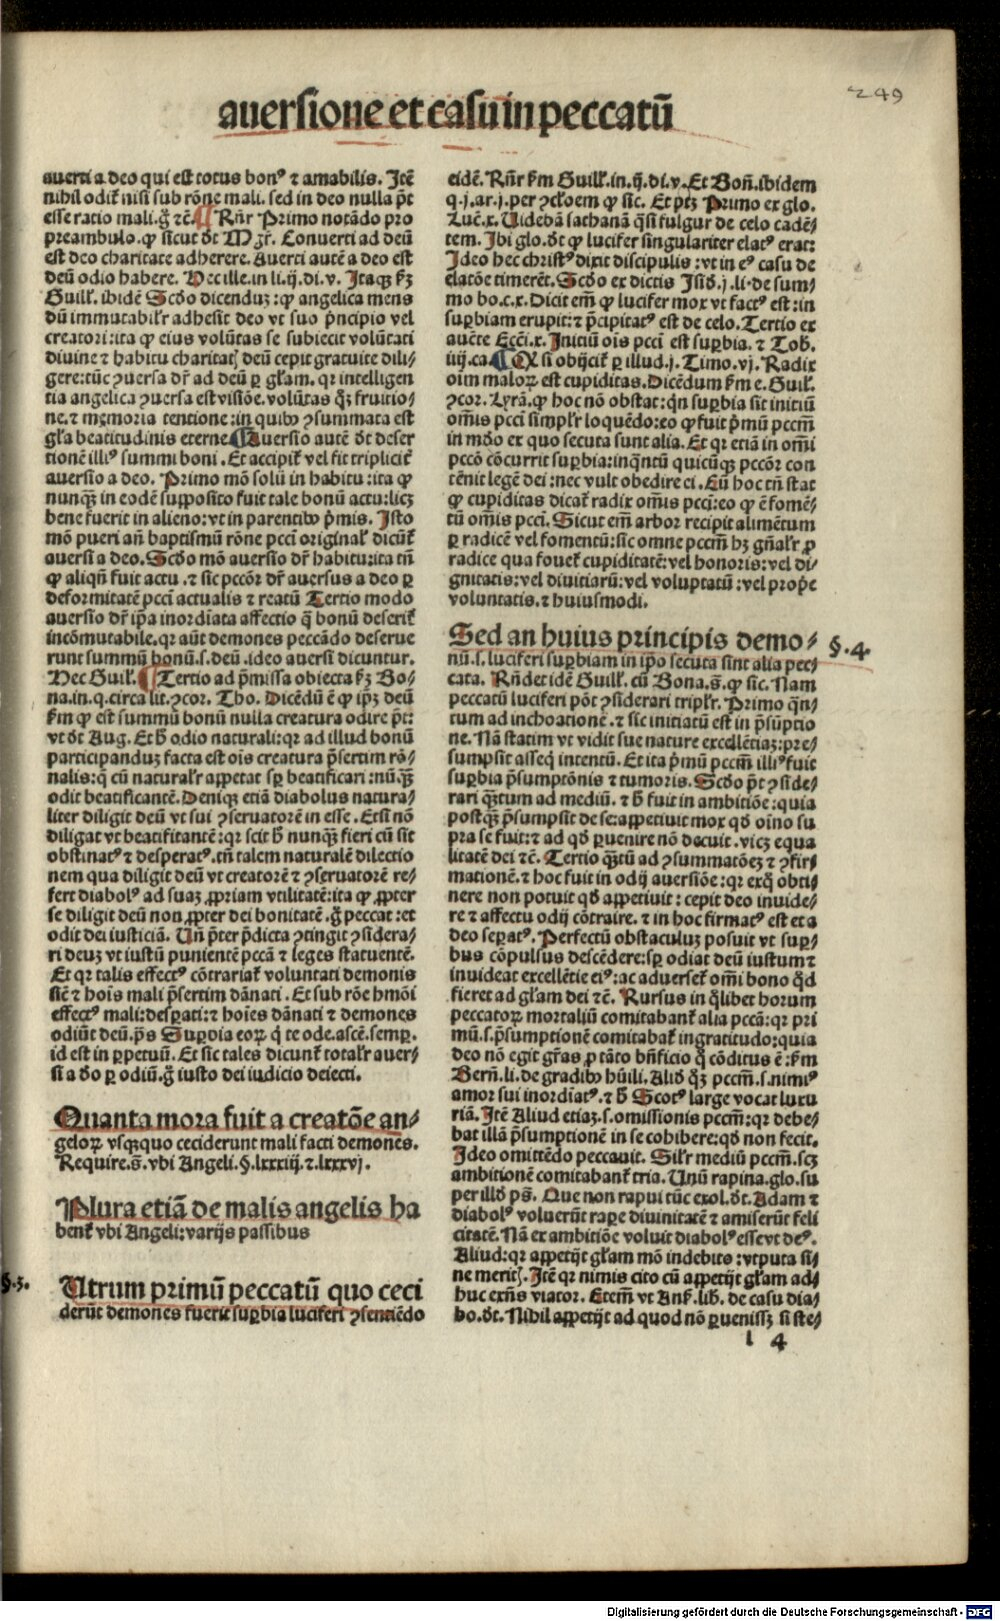 249
auersione et casu in peccatū
auerti a deo qui est totus bonꝰ ⁊ amabilis. Itē
nihil odit᷑ nisi sub rōne mali. sed in deo nulla pōt
esse ratio mali. g̊ ⁊c̄. ¶ Rn̄r Primo notādo pro
preambulo. ꝙ sicut dt̄ Mgr̄. Conuerti ad deū
est deo charitate adherere. Auerti autē a deo est
deū odio habere. Hec ille. in li. ij. di. v. Itaqꝫ ẜm
Guill. ibidē Scdo dicenduꝫ: ꝙ angelica mens
dū immutabilr̄ adhesit deo vt suo p̄ncipio vel
creatori: ita ꝙ eius volūtas se subiecit volūtati
diuine ⁊ habitu charitatꝭ deū cepit gratuite dili/
gere: tūc ꝯuersa dr̄ ad deū ꝑ gl̄am. qr intelligen
tia angelica ꝯuersa est visiōe. volūtas qꝫ fruitio/
ne. ⁊ memoria tentione: in quibꝰ ꝯsummata est
gl̄a beatitudinis eterne ¶ Auersio autē dt̄ deser
tionē illiꝰ summi boni. Et accipit᷑ vel fit triplicit᷑
auersio a deo. Primo mō solū in habitu: ita ꝙ
nunqꝫ in eodē supposito fuit tale bonū actu: licꝫ
bene fuerit in alieno: vt in parentibꝰ p̄mis. Isto
mō pueri an̄ baptismū rōne pccī original᷑ dicūt᷑
auersi a deo. Scdo mō auersio dr̄ habitu: ita tn̄
ꝙ aliqn̄ fuit actu. ⁊ sic pccōr dr̄ auersus a deo ꝑ
deformitatē pccī actualis ⁊ reatū Tertio modo
auersio dr̄ ip̄a inordīata affectio q̄ bonū deserit᷑
incōmutabile. qr aūt demones peccādo deserue
runt summū bonū. s. deū. ideo auersi dicuntur.
Hec Guil. ¶ Tertio ad p̄missa obiecta ẜm Bo/
na. in. q. circa lit. ꝯcor. Tho. Dicēdū ē ꝙ ip̄ꝫ deū
ẜm ꝙ est summū bonū nulla creatura odire pōt:
vt dt̄ Aug. Et h̄ odio naturali: qr ad illud bonū
participanduꝫ facta est oīs creatura p̄sertim rō/
nalis: q̄ cū naturalr̄ appetat sꝑ beatificari: nūqꝫ
odit beatificantē. Deniqꝫ etiā diabolus natura/
liter diligit deū vt sui ꝯseruatorē in esse. Etsi nō
diligat vt beatifitantē: qr scit h̄ nunqꝫ fieri cū sit
obstinatꝰ ⁊ desperatꝰ. tn̄ talem naturalē dilectio
nem qua diligit deū vt creatorē ⁊ ꝯseruatorē re/
fert diabolꝰ ad suaꝫ ꝓpriam vtilitatē: ita ꝙ ꝓpter
se diligit deū non ꝓpter dei bonitatē. g̊ peccat: et
odit dei iusticiā. Un̄ p̄ter p̄dicta ꝯtingit ꝯsidera/
ri deuꝫ vt iustū punientē pccā ⁊ leges statuentē.
Et qr talis effectꝰ cōtrariat᷑ voluntati demonis
siċ ⁊ hoīs mali p̄sertim dānati. Et sub rōe hmōi
effectꝰ mali: desꝑati: ⁊ hoīes dānati ⁊ demones
odiūt deū. p̄s Suꝑbia eoꝝ q̄ te ode. ascē. semꝑ.
id est in ꝑpetuū. Et sic tales dicunt᷑ total᷑r auer/
si a d̄o ꝑ odiū. g̊ iusto dei iudicio deiecti.
Quanta mora fuit a creatōe an/
geloꝝ vsqꝫquo ceciderunt mali facti demones.
Require. s̄. vbi Angeli. §. lxxxiij. ⁊. lxxxvj.
Plura etiā de malis angelis ha
bent᷑ vbi Angeli: varijs passibus
§.3.
Utrum primū peccatū quo ceci
derūt demones fuerit suꝑbia luciferi ꝯsentiēdo
eidē. Rn̄r ẜm Guill. in. ij. di. v. Et Bon̄. ibidem
q. j. ar. j. per ꝯcl̄oem ꝙ sic. Et ptꝫ Primo ex glo.
Luc̄. x. Uidebā sathanā q̄si fulgur de celo cadē/
tem. Ibi glo. dt̄ ꝙ lucifer singulariter elatꝰ erat:
Ideo hec christꝰ dixit discipulis: vt in eꝰ casu de
elatōe timerēt. Scdo ex dictis Isid. j. li. de sum/
mo bo. c. x. Dicit em̄ ꝙ lucifer mox vt factꝰ est: in
suꝑbiam erupit: ⁊ p̄cipitatꝰ est de celo. Tertio ex
aucte Ecc̄i. x. Initiū oīs pccī est suꝑbia. ⁊ Tob.
iiij. ca. ¶ Qꝫ si obijcit᷑ ꝑ illud. j. Timo. vj. Radix
oīm maloꝝ est cupiditas. Dicēdum ẜm e. Guil.
ꝯcor. Lyrā. ꝙ hoc nō obstat: qn̄ suꝑbia sit initiū
oīs pccī simpl᷑r loquēdo: eo ꝙ fuit p̄mū pccm̄
in mūdo ex quo secuta sunt alia. Et qr etiā in om̄i
pccō cōcurrit suꝑbia: inqntū quicūqꝫ pccōr con
tēnit legē dei: nec vult obedire ei. Cū hoc tn̄ stat
ꝙ cupiditas dicat᷑ radix om̄is pccī: eo ꝙ ē fomē/
tū om̄is pccī. Sicut em̄ arbor recipit alimētum
ꝑ radicē vel fomentū: sic omne pccm̄ hꝫ gn̄al᷑r ꝓ
radice qua fouet᷑ cupiditatē: vel honoris: vel di/
gnitatis: vel diuitiarū: vel voluptatū: vel propē
voluntatis. ⁊ huiusmodi.
Sed an huius principis demo/
§.4.
nū. s. luciferi suꝑbiam in ip̄o secuta sint alia pec/
cata. Rn̄det idē Guill. cū Bona. s̄. ꝙ sic. Nam
peccatū luciferi pōt ꝯsiderari tripl᷑r. Primo qn̄/
tum ad inchoationē. ⁊ sic initiatū est in p̄sūptio
ne. Nā statim vt vidit sue nature excellētiaꝫ: pre/
sumpsit asseq̄ intentū. Et ita p̄mū pccm̄ illiꝰ fuit
suꝑbia p̄sumptōnis ⁊ tumoris. Scdo pōt ꝯside/
rari qꝫtum ad mediū. ⁊ h̄ fuit in ambitiōe: quia
postqꝫ p̄sumpsit de se: appetiuit mox qd̄ oīno su
pra se fuit: ⁊ ad qd̄ ꝑuenire nō decuit. vicꝫ equa
litatē dei ⁊c̄. Tertio qꝫtū ad ꝯsummatōeꝫ ⁊ ꝯfir/
mationē. ⁊ hoc fuit in odij auersiōe: qr exq̊ obti/
nere non potuit qd̄ appetiuit: cepit deo inuide/
re ⁊ affectu odij cōtraire. ⁊ in hoc firmatꝰ est et a
deo seꝑatꝰ. Perfectū obstaculuꝫ posuit vt suꝑ/
bus cōpulsus descēdere: sꝑ odiat deū iustum ⁊
inuideat excellētie eiꝰ: ac aduerset᷑ om̄i bono qd̄
fieret ad gl̄am dei ⁊c̄. Rursus in q̊libet horum
peccatoꝝ mortaliū comitabant᷑ alia pccā: qr pri
mū. s. p̄sumptionē comitabat᷑ ingratitudo: quia
deo nō egit gr̄as ꝓ tāto bn̄ficio q̊ cōditus ē: ẜm
Bern̄. li. de gradibꝰ hūili. Aliꝰ qꝫ pccm̄. s. nimiꝰ
amor sui inordīatꝰ. ⁊ h̄ Scotꝰ large vocat luxu
riā. Itē Aliud etiaꝫ. s. omissionis pccm̄: qr debe/
bat illā p̄sumptionē in se cohibere: qd̄ non fecit.
Ideo omittēdo peccauit. Silr̄ mediū pccm̄. scꝫ
ambitionē comitabant᷑ tria. Unū rapina. glo. su
per illd̄ ps̄. Que non rapui tūc exol. dt̄. Adam ⁊
diabolꝰ voluerūt raꝑe diuinitatē ⁊ amiserūt feli
citatē. Nā ex ambitiōe voluit diabolꝰ esse vt deꝰ.
Aliud: qr appetijt gl̄am mō indebito: vtputa si/
ne meritꝭ. Itē qr nimis cito cū appetijt gl̄am ad/
huc exn̄s viator. Etem̄ vt Ans̄. lib. de casu dia/
bo. dt̄. Nihil appetijt ad quod nō ꝑuenissꝫ si ste/
l 4
Digitalisierung gefördert durch die Deutsche Forschungsgemeinschaft - DFG